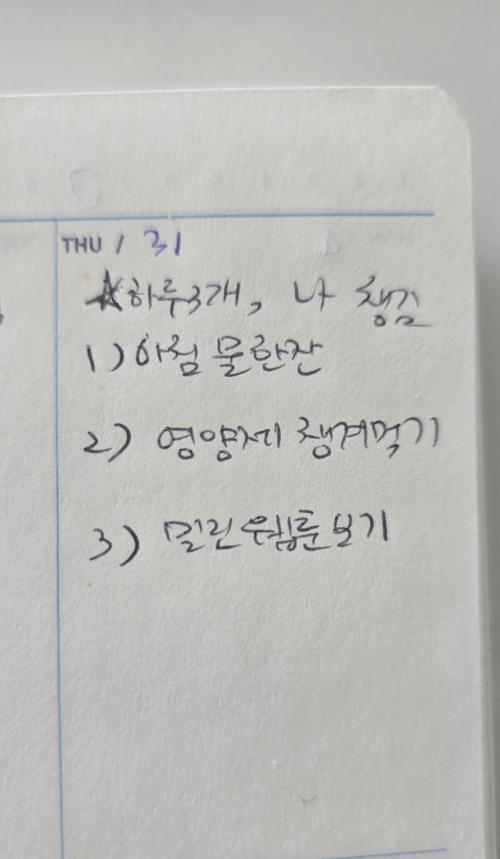 THU / 31
★하루3개, 나 챙김
1) 아침 물한잔
2) 영양제 챙겨먹기
3) 밀린 웹툰보기